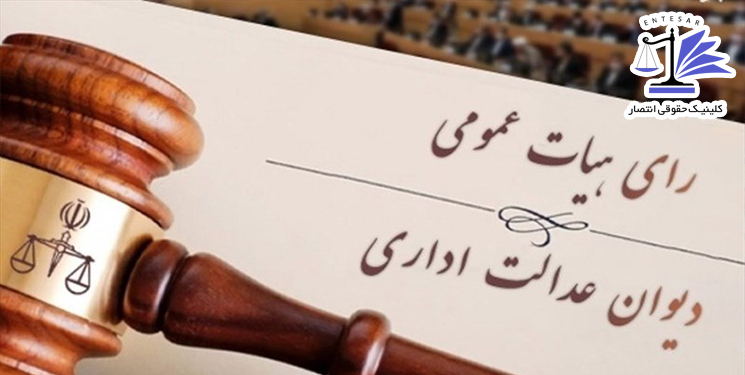 ENTESAR
کلینیک حقوقی انتصار
رای هیات عمومی
دیوان عدالت اداری